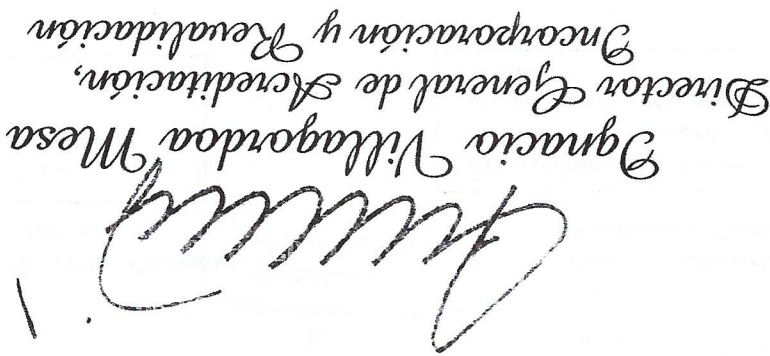 Ignacio Villagordoa Mesa
Director General de Acreditación,
Incorporación y Revalidación